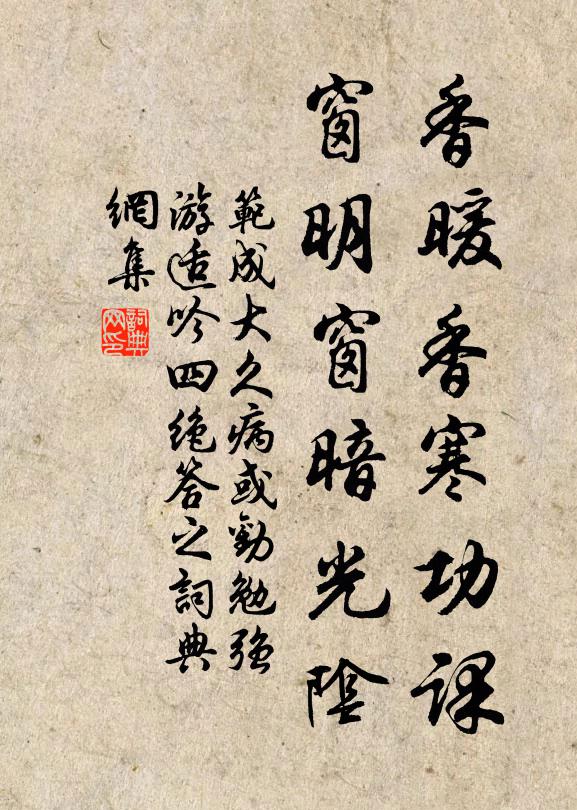 香暖香寒功課
窗明窗暗光陰
範成大久病或勸勉強
游适吟四絶答之詞典
網集
詞典
网印